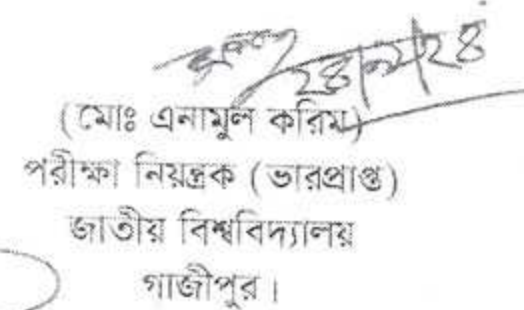 (মোঃ এনামুল করিম)
পরীক্ষা নিয়ন্ত্রক (ভারপ্রাপ্ত)
জাতীয় বিশ্ববিদ্যালয়
গাজীপুর।